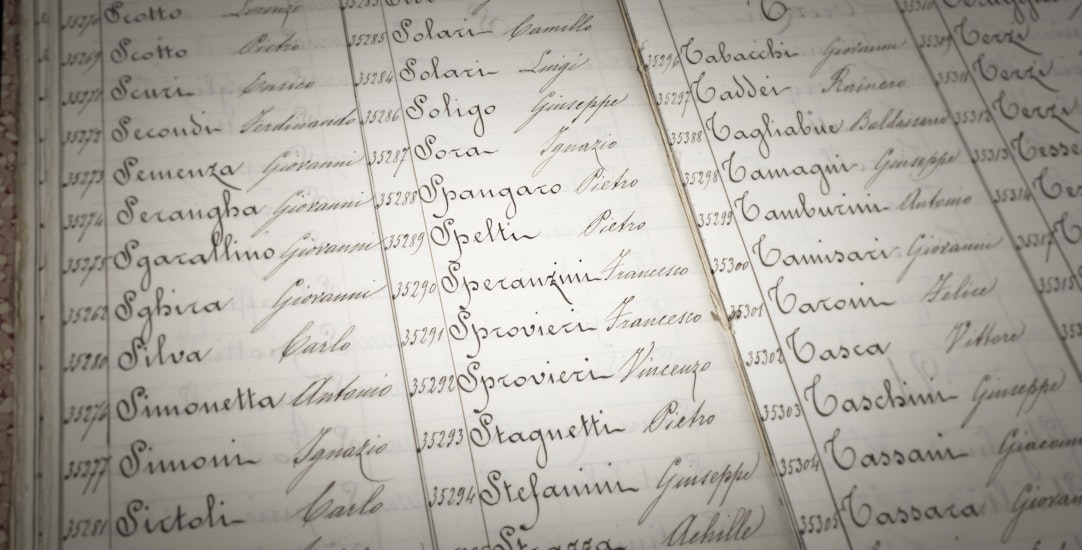 Scotto Lorenzo
35269 Scotto Pietro
35271 Scuri Enrico
35272 Secondi Ferdinando
35273 Semenza Giovanni
35274 Serangha Giovanni
35275 Sgarallino Giovanni
35262 Sghira Giovanni
35280 Silva Carlo
35276 Simonetta Antonio
35277 Simoni Ignazio
35281 Sirtoli Carlo
35283
35285 Solari Camillo
35284 Solari Luigi
35286 Soligo Giuseppe
35287 Sora Ignazio
35288 Spangaro Pietro
35289 Spelti Pietro
35290 Speranzini Francesco
35291 Sprovieri Francesco
35292 Sprovieri Vincenzo
35293 Stagnetti Pietro
35294 Stefanini Giuseppe
Strazza Achille
T
35296 Tabacchi Giovanni
35297 Taddei Rainero
35388 Tagliabue Baldassare
35298 Tamagni Giuseppe
35299 Tamburini Antonio
35300 Tamisari Giovanni
35301 Taroni Felice
35302 Tasca Vittore
35303 Taschini Giuseppe
35304 Tassani Giacomo
35305 Tassara
35310
35309 Terzi
35311 Terzi
35312 Terzi
35313
35314
35317
35315